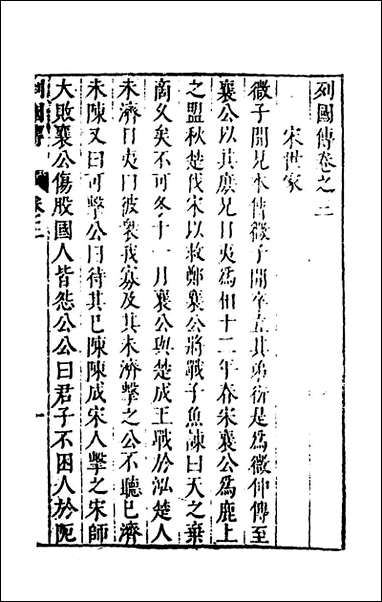 列國傳卷之三
宋世家
微子開見本傳微子開卒立其弟衍是爲微仲傳至
襄公以其庶兄目夷爲相十二年春宋襄公爲鹿上
之盟秋楚伐宋以救鄭襄公將戰子魚諫曰天之棄
商久矣不可冬十一月襄公與楚成王戰於泓楚人
未濟目夷曰彼衆我寡及其未濟擊之公不聽已濟
未陳又曰可擊公曰待其已陳陳成宋人擊之宋師
大敗襄公傷股國人皆怨公公曰君子不困人於阨
列國傳 卷之三 一